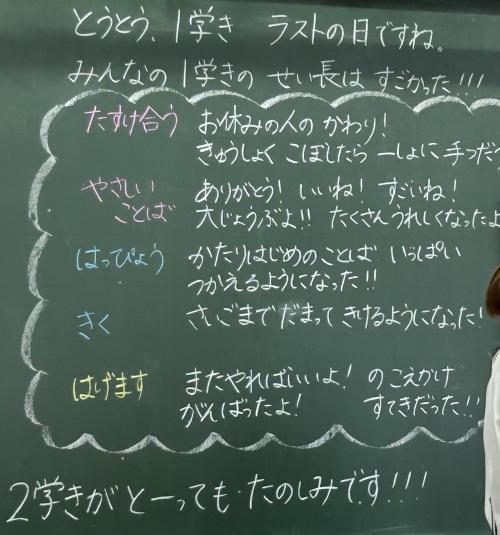 とうとう、1学き ラストの日ですね。
みんなの1学きの せい長は すごかった!!!
たすけ合う お休みの人の かわり!
きゅうしょく こぼしたら 一しょに 手つだう
やさしい ありがとう! いいね! すごいね!
ことば 大じょうぶよ!! たくさんうれしくなったよ
はっぴょう かたりはじめのことば いっぱい
つかえるようになった!!
きく さいごまで だまって きけるようになった!
はげます またやればいいよ! のこえかけ
がんばったよ! すてきだった!!
2学きが とーっても・たのしみです!!!